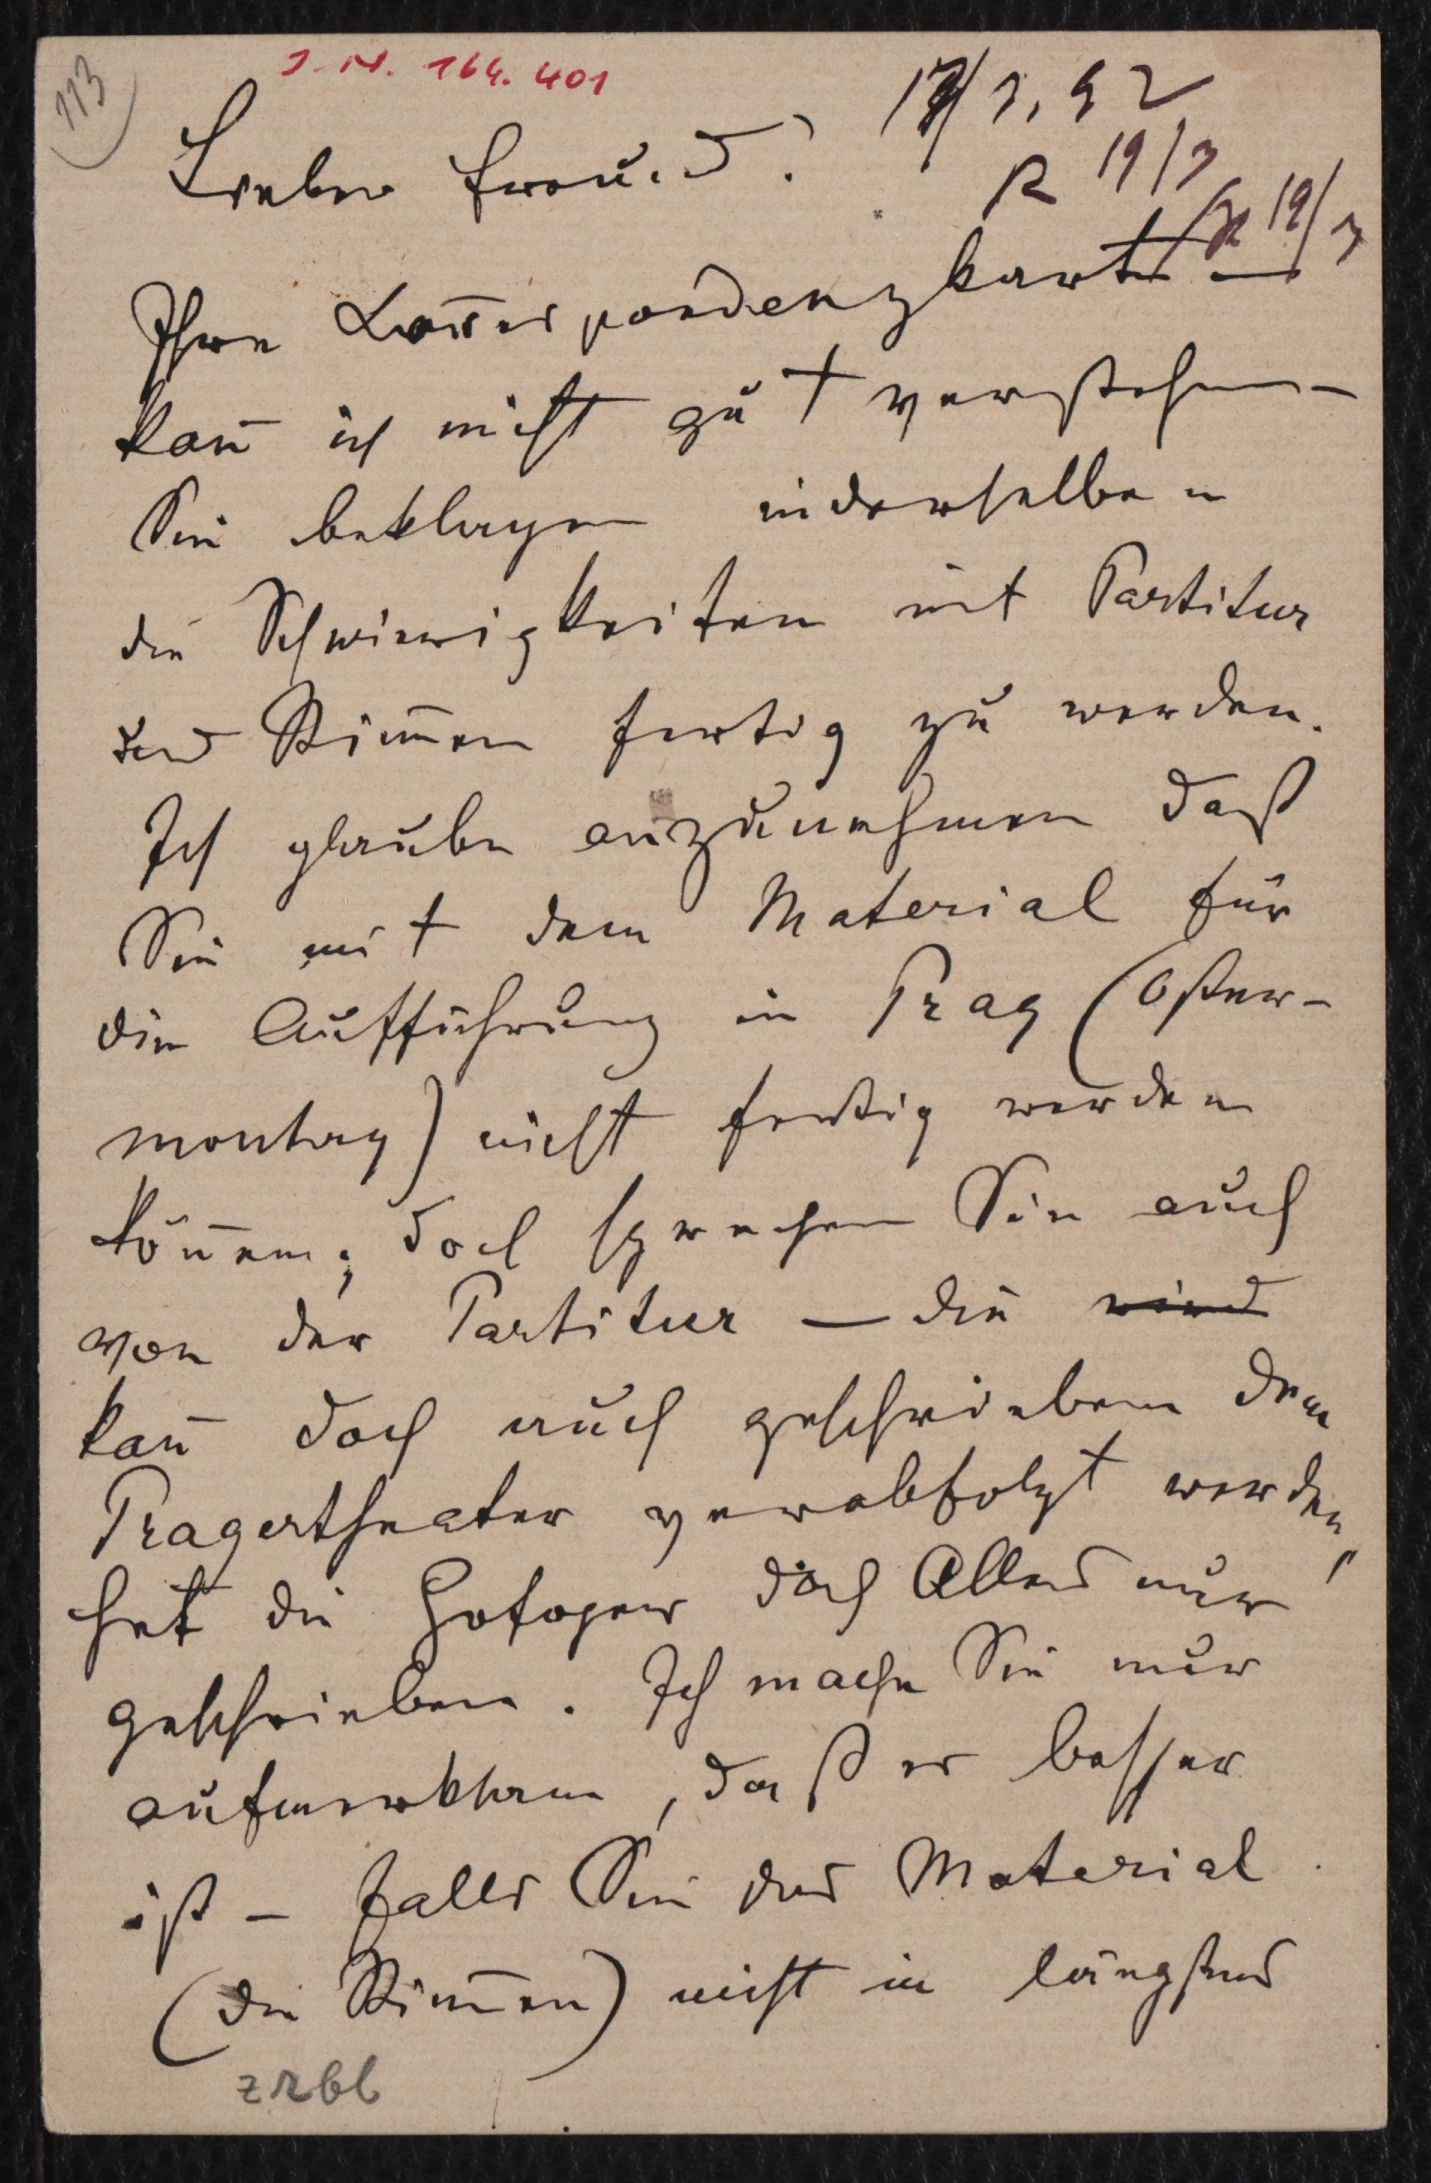 113
I. N. 164.401
17/3, 92
Lieber Freund!
R 19/3
19/3
Ihre Correspondenzkarte —
kan̄ ich nicht gut verstehen —
Sie beklagen in derselben
die Schwierigkeiten mit Partitur
und Stim̄en fertig zu werden.
Ich glaube anzunehmen daß
Sie mit dem Material für
die Aufführung in Prag (Oster-
montag) nicht fertig werden
kön̄en; doch sprechen Sie auch
von der Partitur — die wird
kan̄ doch auch geschrieben dem
Pragertheater verabfolgt werden,
hat die Hofoper doch Alles nur
geschrieben. Ich mache Sie nur
aufmerksam, daß es besser
ist — falls Sie das Material
(die Stim̄en) nicht in längstens